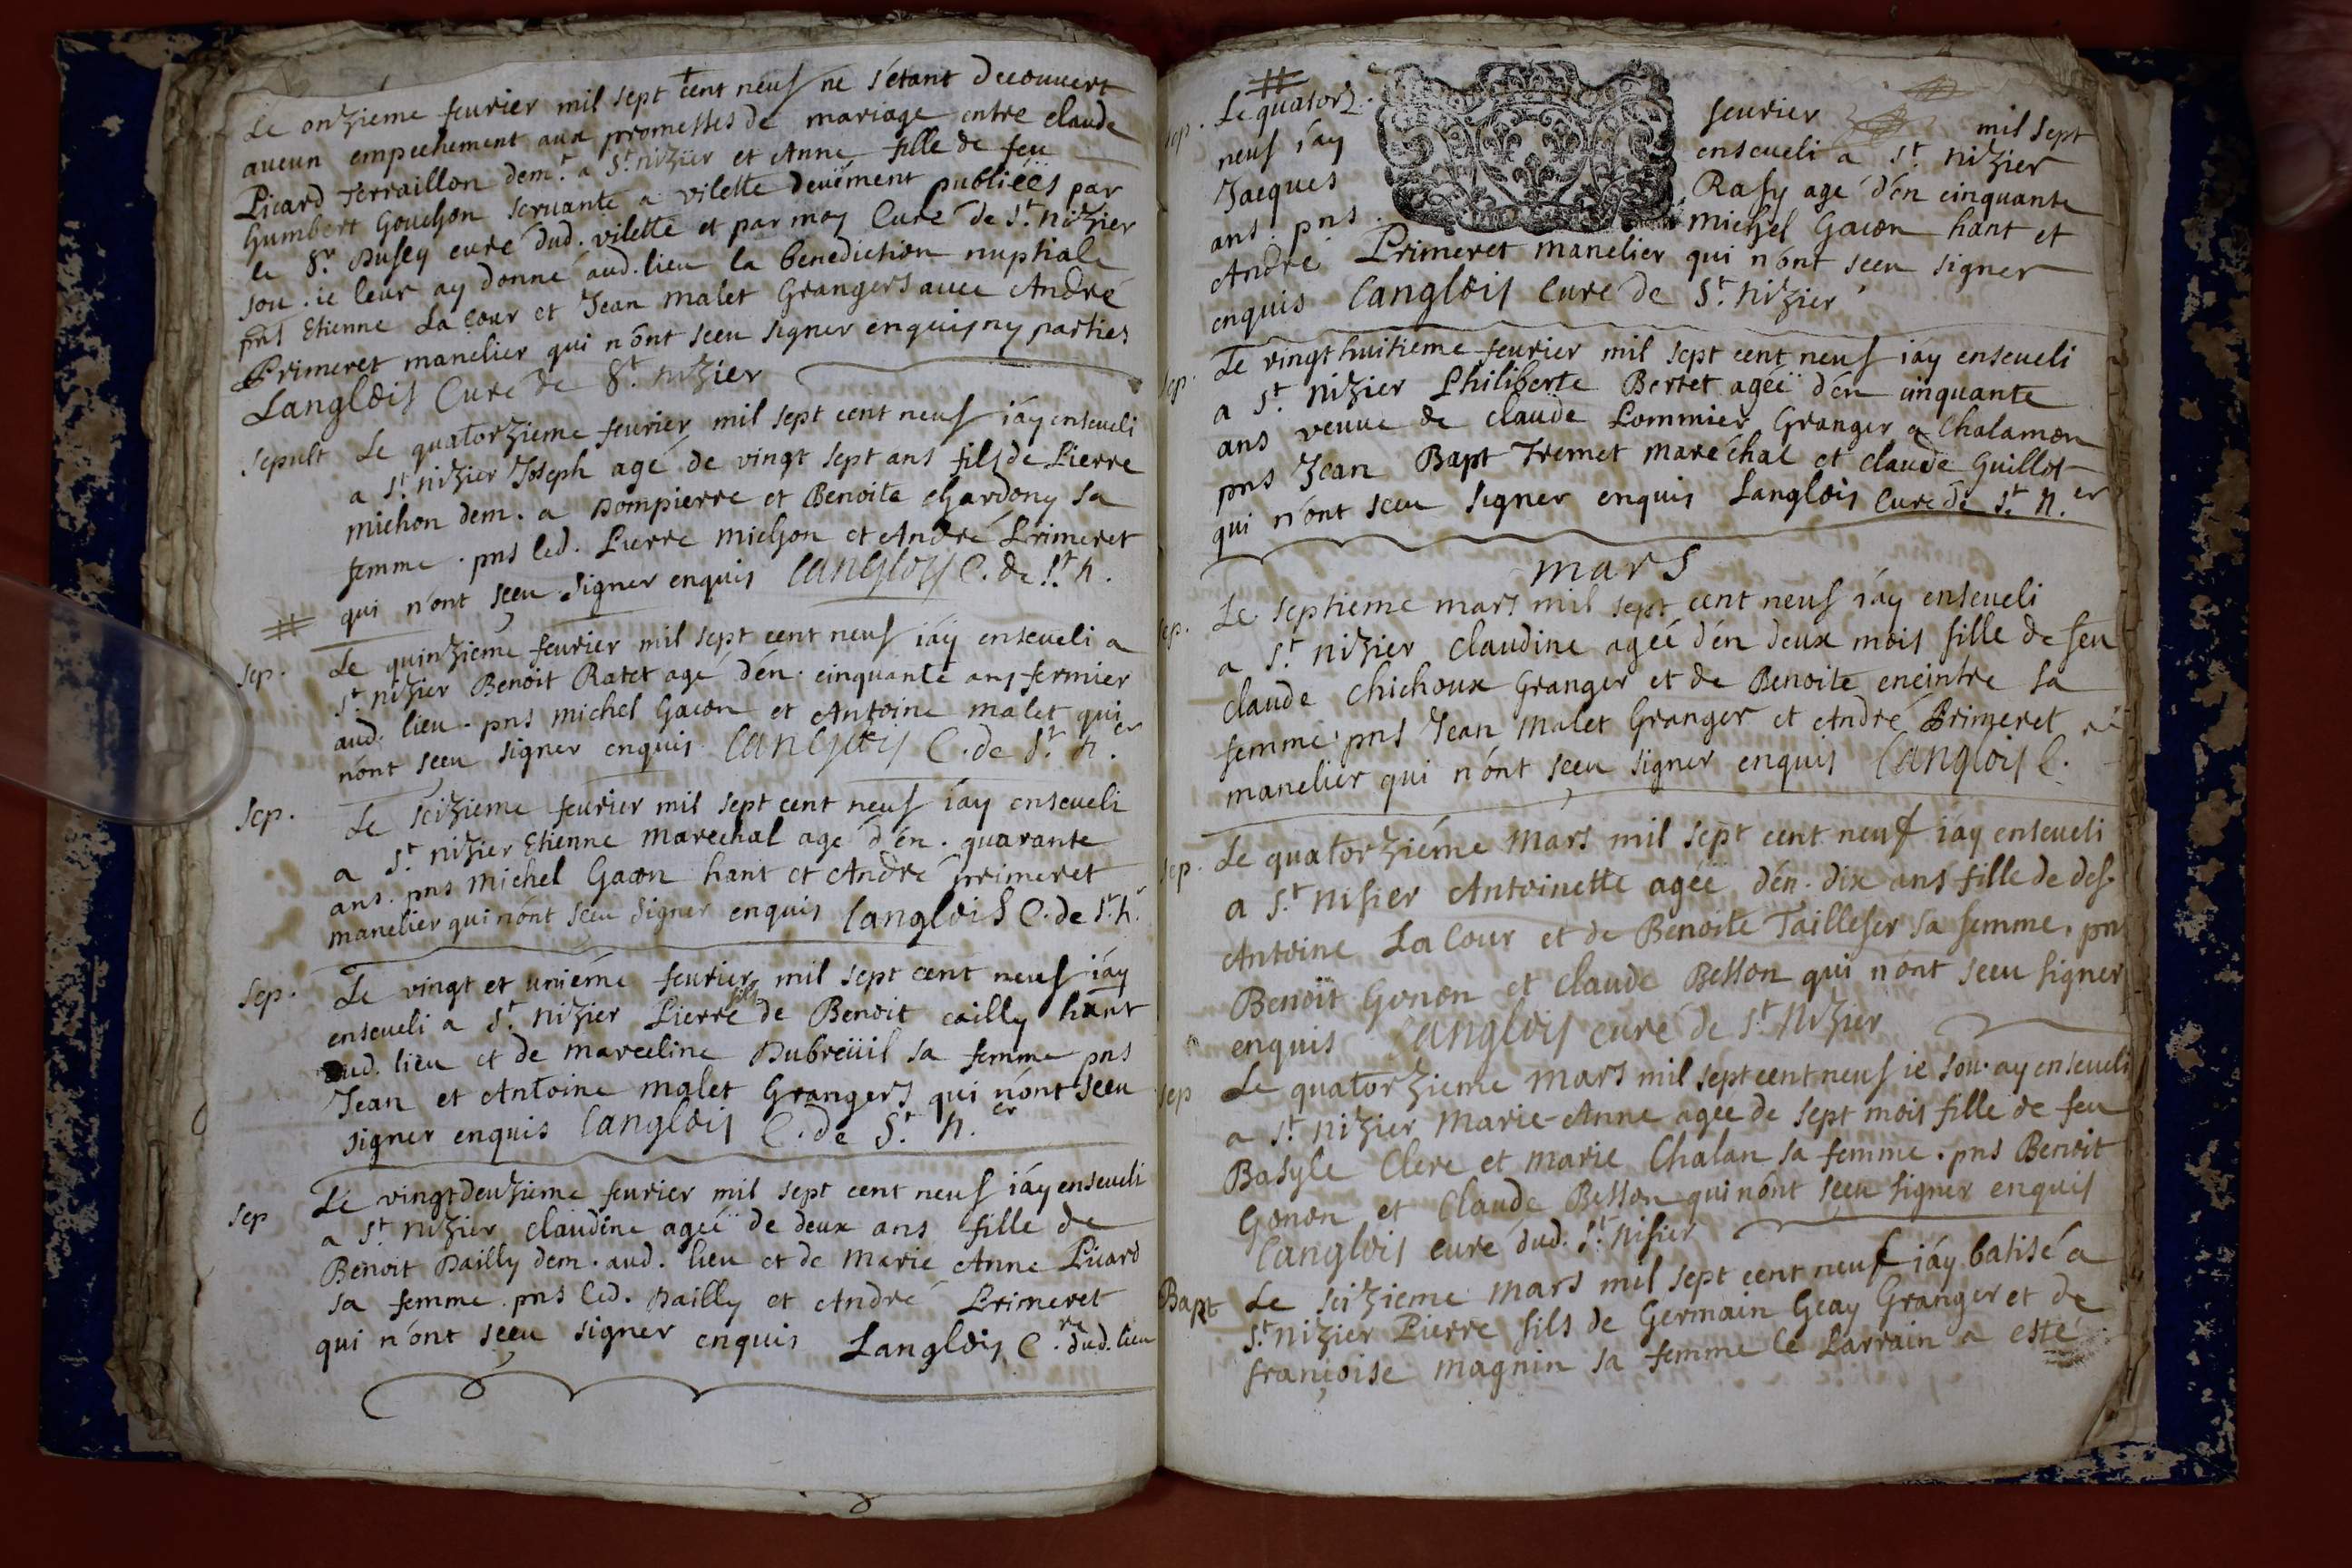 Le onzieme feurier mil sept cent neuf ne s'étant decouuert
aucun empechement aux promesses de mariage entre claude
Picard Terraillon demt. a St. nizier et Anne fille de feu
humbert Gouchon seruante a vilette deuëment publiées par
le Sr. Dusey curé dud. vilette et par moy Curé de St. nizier
sou. ie leur ay donné aud. lieu la benediction nuptiale
pns Etienne La cour et Jean malet Grangers auec André
Primeret manelier qui n'ont sceu signer enquis ny parties
Langlois Curé de St. nizier
sepult Le quatorzieme feurier mil sept cent neuf i'ay enseueli
a St. nizier Joseph agé de vingt sept ans fils de Pierre
michon dem. a Dompierre et Benoite chardony sa
femme . pns led. Pierre michon et André Primeret
qui n'ont sceu signer enquis Langlois C. de St. n.
sep. Le quinzieme feurier mil sept cent neuf i'aÿ enseueli a
St. nizier Benoit Ratet agé d'én. cinquante ans fermier
aud. lieu. pns michel Gacon et Antoine malet qui
n'ont sceu signer enquis Langlois C. de St. n.er
sep. Le seizieme feurier mil sept cent neuf i'ay enseueli
a St. nizier Etienne marechal agé d'én. quarante
ans. pns michel Gacon hant et André primeret
manelier qui n'ont sceu signer enquis Langlois C. de St. n.r
sep. Le vingt et uniéme feurier mil sept cent neuf i'ay
enseueli a St. nizier Pierre fils de Benoit cailly hant
aud. lieu et de marceline Dubreüil sa femme pns
Jean et Antoine malet Grangers qui n'ont sceu
signer enquis Langlois C. de St. n.er
sep Le vingtdeuzieme feurier mil sept cent neuf i'ay enseueli
a St. nizier claudine ageë de deux ans fille de
Benoit Dailly dem. aud. lieu et de Marie Anne Picard
sa femme. pns led. Dailly et André Primeret
qui n'ont sceu signer enquis Langlois C.re dud. lieu
sep. Le quatorz. feurier mil sept
neuf i'ay enseueli a St. nizier
Jacques Rasy agé d'én cinquante
ans. pns. michel Gacon hant et
André Primeret manelier qui n'ont sceu signer
enquis Langlois Curé de St. nizier
sep. Le vingt huitieme feurier mil sept cent neuf i'ay enseueli
a St. nizier Philiberte Bertet ageë d'én cinquante
ans veuue de claude Pommier Granger a Chalamon
pns Jean Bapt Tremet maréchal et claude Guillot
qui n'ont sceu signer enquis Langlois Curé de St. n.er
mars
sep. Le septieme mars mil sept cent neuf i'ay enseueli
a St. nizier claudine ageé d'én deux mois fille de feu
claude chichoux Granger et de Benoite encintre sa
femme. pns Jean malet Granger et André Primeret
manelier qui n'ont sceu signer enquis Langlois C.
sep. Le quatorziéme mars mil sept cent neuf i'ay enseueli
a St. nisier Antoinette agée d'én. dix ans fille de def.
Antoine La Cour et de Benoite Taillefer sa femme, pns
Benoit Gonon et claude Besson qui n'ont sceu signer
enquis Langlois curé de St. Nizier
sep Le quatorzieme mars mil sept cent neuf ie sou. ay enseueli
a St. nizier Marie-Anne agée de sept mois fille de feu
Basyle Clerc et marie Chalan sa femme. pns Benoit
Gonon et Claude Besson qui n'ont sceu signer enquis
Langlois curé dud. St. nisier
Bapt Le seizieme mars mil sept cent neuf i'ay batisé a
St. nizier Pierre fils de Germain Geay Granger et de
françoise magnin sa femme le Parrain a esté